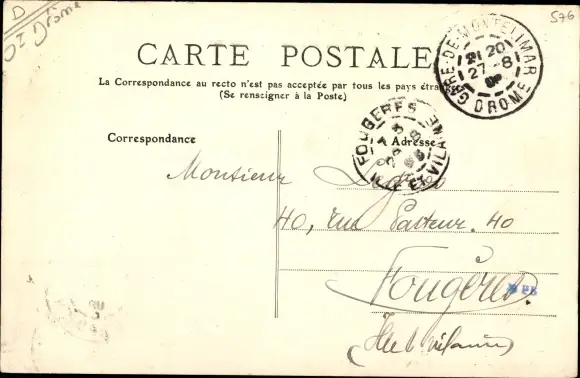 D
Dt Drôme
576
CARTE POSTALE
La Correspondance au recto n'est pas acceptée par tous les pays étra
(Se renseigner à la Poste)
GARE-DE-MONTELIMAR
21 20
27-8
DROME
FOUGERES
ILLE-ET-VILAINE
Correspondance
Adresse
Monsieur
40, rue Pasteur. 40
Fougères.
PB
(Ille & vilaine)